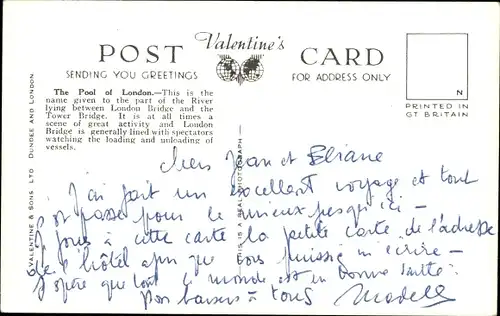 POST Valentine's CARD
SENDING YOU GREETINGS
FOR ADDRESS ONLY
The Pool of London.—This is the
name given to the part of the River
lying between London Bridge and the
Tower Bridge. It is at all times a
scene of great activity and London
Bridge is generally lined with spectators
watching the loading and unloading of
vessels.
N
PRINTED IN
GT BRITAIN
VALENTINE & SONS LTD DUNDEE AND LONDON
THIS IS A REAL PHOTOGRAPH
Chers Jean et Eliane
J'ai fait un excellent voyage et tout
s'est passé pour le mieux jusqu'ici -
Je joins à cette carte la petite carte de l'adresse
de l'hôtel afin que vous puissiez m'écrire -
J'espère que tout le monde est en bonne santé.
Bons baisers à tous